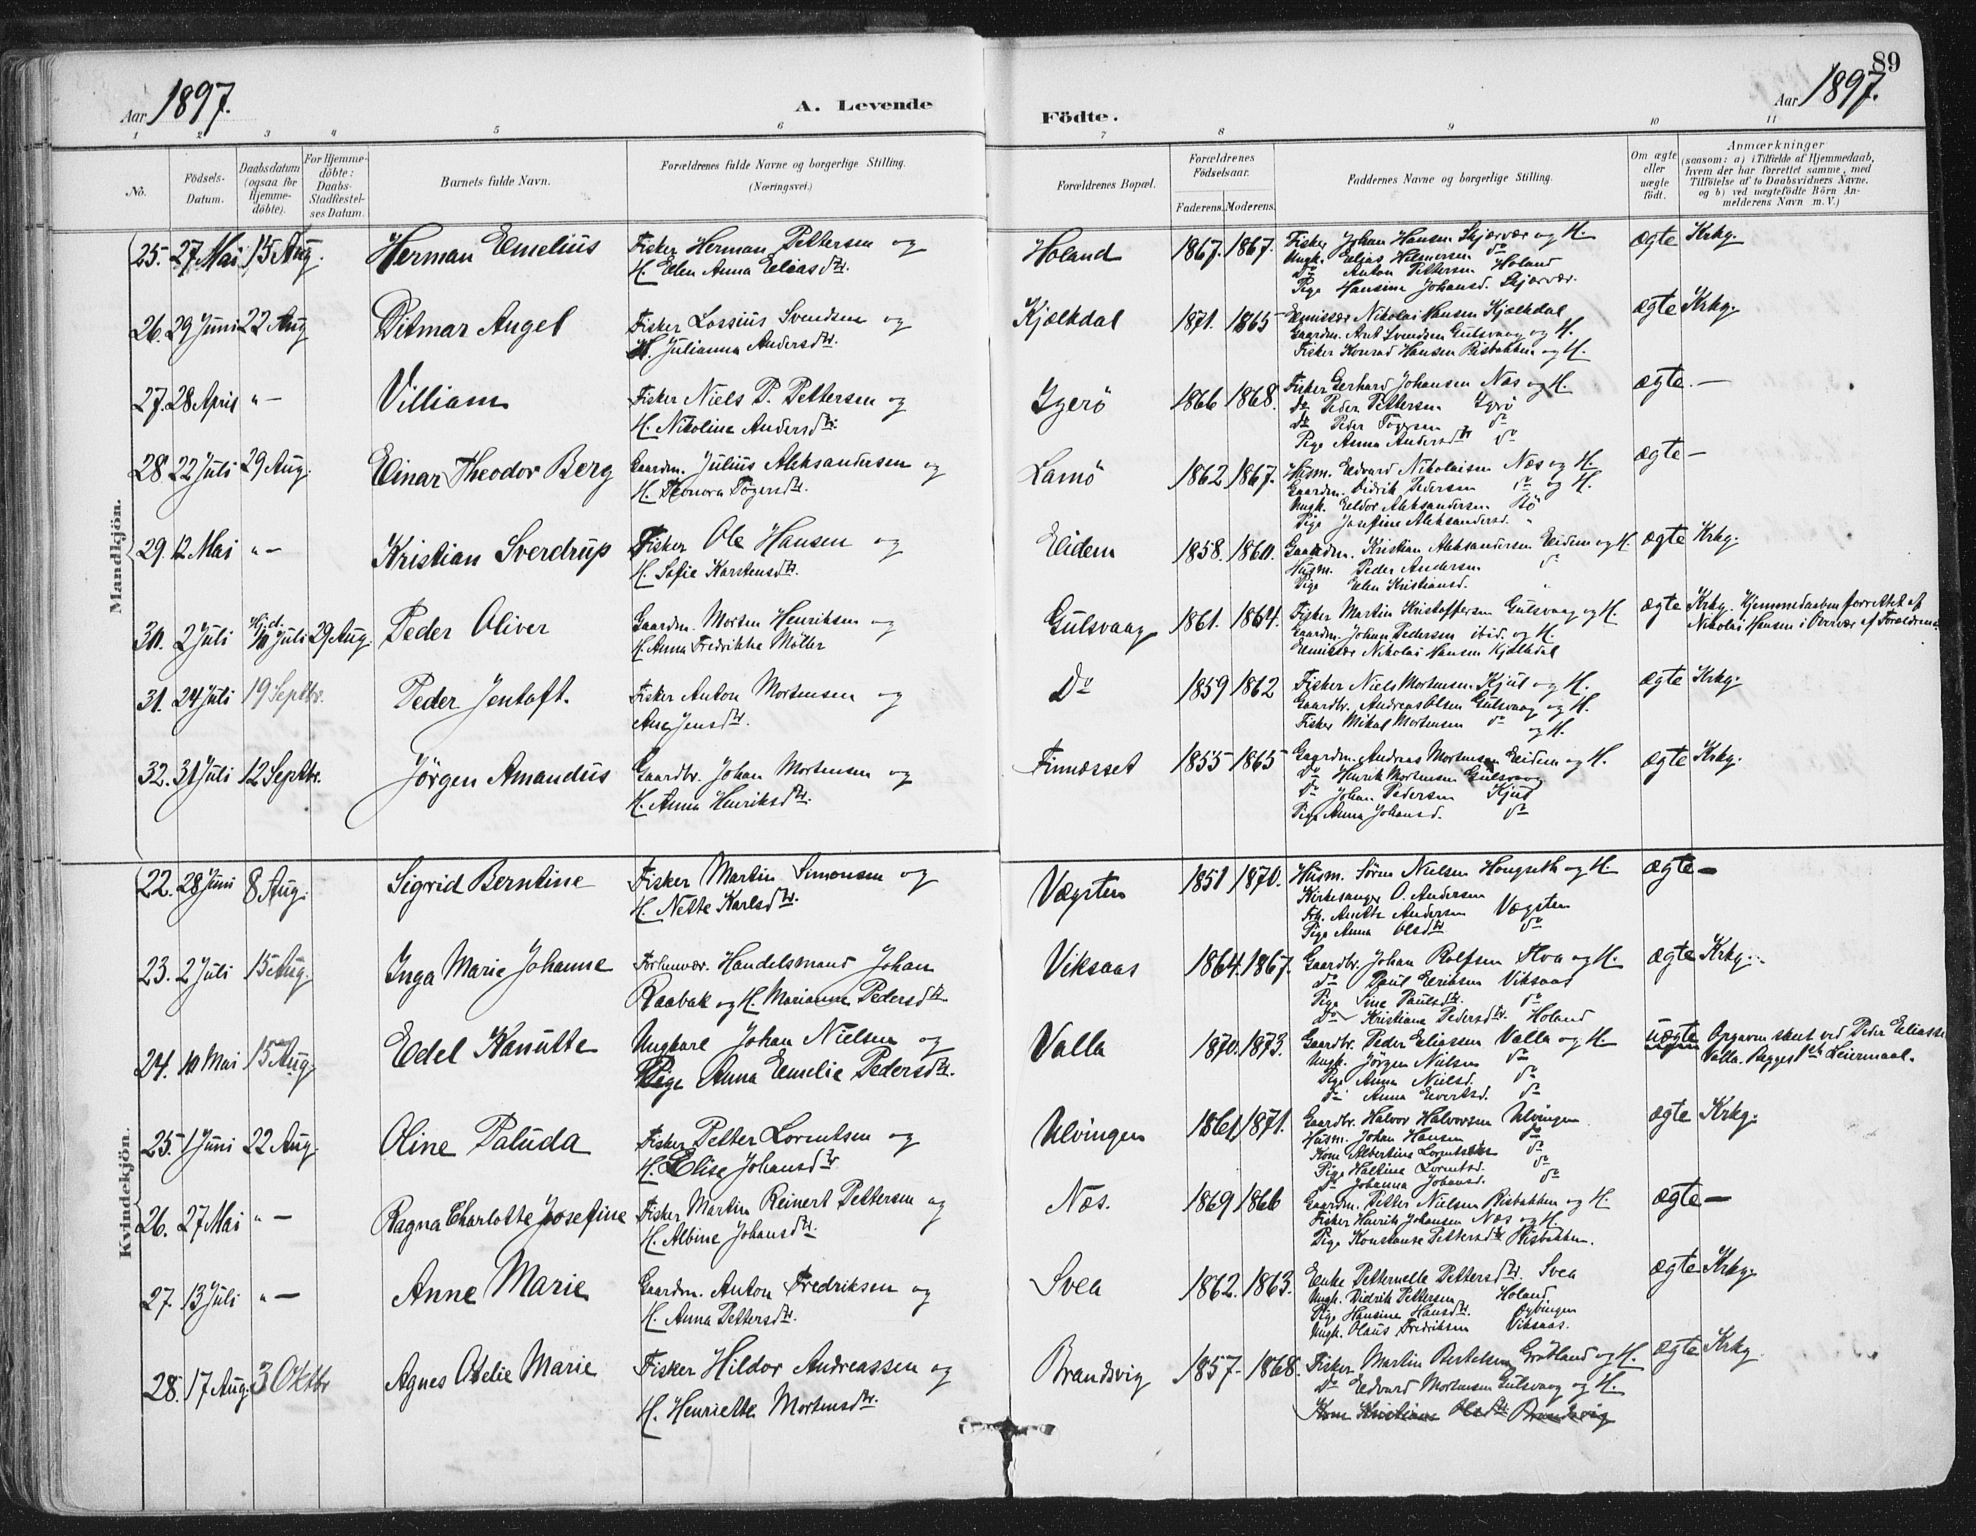 89
Aar 1897.
A. Levende
Födte.
Aar 1897.
1 2 3 4 5 6 7 8 9 10 11
No.
Födsels-Datum.
Daabsdatum (ogsaa for Hjemme-döbte).
For Hjemme-döbte: Daabs-Stadfæstel-ses Datum.
Barnets fulde Navn.
Forældrenes fulde Navne og borgerlige Stilling.
(Næringsvei.)
Forældrenes Bopæl.
Forældrenes Födselsaar.
Faderens. Moderens.
Faddernes Navne og borgerlige Stilling.
Om ægte eller uægte födt.
Anmærkninger
(saasom: a) i Tilfælde af Hjemmedaab,
hvem der har forrettet samme, med
Tilföielse af to Daabsvidners Navne,
og b) ved uægtefödte Börn An-
melderens Navn m. V.)
Mandkjön.
25. 27 Mai 15 Aug. Herman Emelius Fisker Herman Pettersen og
H. Elen Anna Eliasdtr.
Holand 1867. 1867. Fisker Johan Hansen Skjærvær og H.
Ungk. Elias Hilmersen do
do Anton Pettersen Holand
Pige Hansine Johansd. Skjærvær.
ægte Krkg.
26. 29 Juni 22 Aug Ditmar Angel Fisker Lossius Svendsen og
H. Julianna Andersdtr.
Kjælkdal 1871. 1865 Nikolai Hansen Kjælkdal
Gaardm. Ant Svendsen Gulsvaag og H.
Fisker Konrad Hansen Risbakken og H.
ægte Krkg.
27. 28 April " — Villiam Fisker Niels P. Pettersen og
H. Nikoline Andersdtr.
Igerö 1866 1868. Fisker Gerhard Johansen Næs og H.
do Peder Pettersen Igerö
do Peder do
Pige Anna Andersdtr do
ægte. —
28. 22 Juli 29 Aug. Einar Theodor Berg Gaardm. Julius Aleksandersen og
H. Tögersdtr.
Lamö 1862 1867. Husm. Edvard Nikolaisen Næs og H.
Gaardm. Didrik Pedersen do og H.
Ungk. Eldor Aleksandersen
Pige Josefine Aleksandersd. "
ægte —
29. 12 Mai " — Kristian Sverdrup Fisker Ole Hansen og
H. Sofie Karstensdtr.
Eidem 1858. 1860. Gaardm. Kristian Aleksandersen Eidem og H.
Husm. Peder Andersen do
Pige Elen Kristiansd. "
ægte Krkg.
30. 2 Juli Hjd. 1/10 Juli 29 Aug. Peder Oliver Gaardm. Morten Henriksen og
H. Anna Fredrikke Möller
Gulsvaag 1861. 1864. Fisker Martin Kristoffersen Gulsvaag og H.
Gaardm. Johan Pedersen ibid. og H.
Nikolai Hansen Kjælkdal
ægte Krkg. Hjemmedaaben forrettet af
Nikolai Hansen i Overvær af Forældrene.
31. 24 Juli 19 Septbr. Peder Jentoft. Fisker Anton Mortensen og
Ane Jensdtr.
Do 1859 1862 Fisker Niels Mortensen Kjul og H.
Gaardbr. Andreas Olsen Gulsvaag og H.
Fisker Mikal Mortensen do og H.
ægte Krkg.
32. 31 Juli 12 Septbr. Jörgen Amandus Gaardbr. Johan Mortensen og
H. Anna Henriksdtr.
Finnæsset 1855 1865 Gaardm. Andreas Mortensen Eidem og H.
do Henrik Mortensen Gulsvaag
do Johan Pedersen Kjul
Pige Anna Johansd. do
ægte Krkg.
Kvindekjön.
22. 28 Juni 8 Aug. Sigrid Berntine Fisker Martin Simonsen og
H. Nette Karlsdtr.
Vægsten 1851 1870. Husm. Sören Nielsen Hongseth og H.
Kirkesanger O. Andersen
Frk. Anette Andersen Vægsten
Pige Anna Olsdtr do
ægte —
23. 2 Juli 15 Aug. Inga Marie Johanne Forhenvær. Handelsmand Johan
Raabak og H. Marianne Pedersdtr.
Viksaas 1864. 1867. Gaardbr. Johan Rolfsen Floa og H.
do Paul Eriksen Viksaas
Pige Sine Paulsdtr. do
do Kristiane Pedersdtr. Holand
ægte Krkg.
24. 10 Mai 15 Aug Edel Kanutte Ungkarl Johan Nielsen og
Pige Anna Emelie Pedersdtr.
Valla 1870. 1873. Gaardbr. Peder Eliassen Valla og H.
Ungk. Jörgen Nielsen do
Pige Anna Nielsd. do
do Anna Evertsd. do
uægte Opgaven skeet ved Peder Eliassen
Valla. Begges 1ste Leiermaal.
25. 1 Juni 22 Aug. Oline Paluda Fisker Petter Lorentsen og
H. Elise Johansdtr
Ulvingen 1861 1871. Gaardbr. Halvor Halvorsen Ulvingen
Husm. Johan Hansen do
Kone Albertine Lorentsen do
Pige Haltine Lorentsd. do
do Johanna Johansd. do
ægte Krkg.
26. 27 Mai " — Ragna Charlotte Josefine Fisker Martin Reinert Pettersen og
H. Albine Johansdtr.
Næs. 1869 1866 Gaardm. Petter Nielsen Risbakken og H.
Fisker Henrik Johansen Næs og H.
Pige Konstanse Pettersdtr Risbakken.
ægte —
27. 13 Juli " — Anne Marie Gaardm. Anton Fredriksen og
H. Anna Pettersdtr.
Svea 1862. 1863. Enke Petternelle Pettersdtr. Svea
Ungk. Didrik Pettersen Holand
Pige Hansine Hansdtr. Öybingen
Ungk. Olaus Fredriksen Viksaas.
ægte Krkg.
28. 17 Aug. 3 Oktbr Agnes Otelie Marie Fisker Hildor Andreassen og
H. Henriette Mortensdtr.
Brandsvig 1857. 1868. Fisker Martin Bertelsen Grötland og H.
do Edvard Mortensen Gulsvaag og H.
Kone Kristiane Olsdtr Brandsvig
ægte Krkg